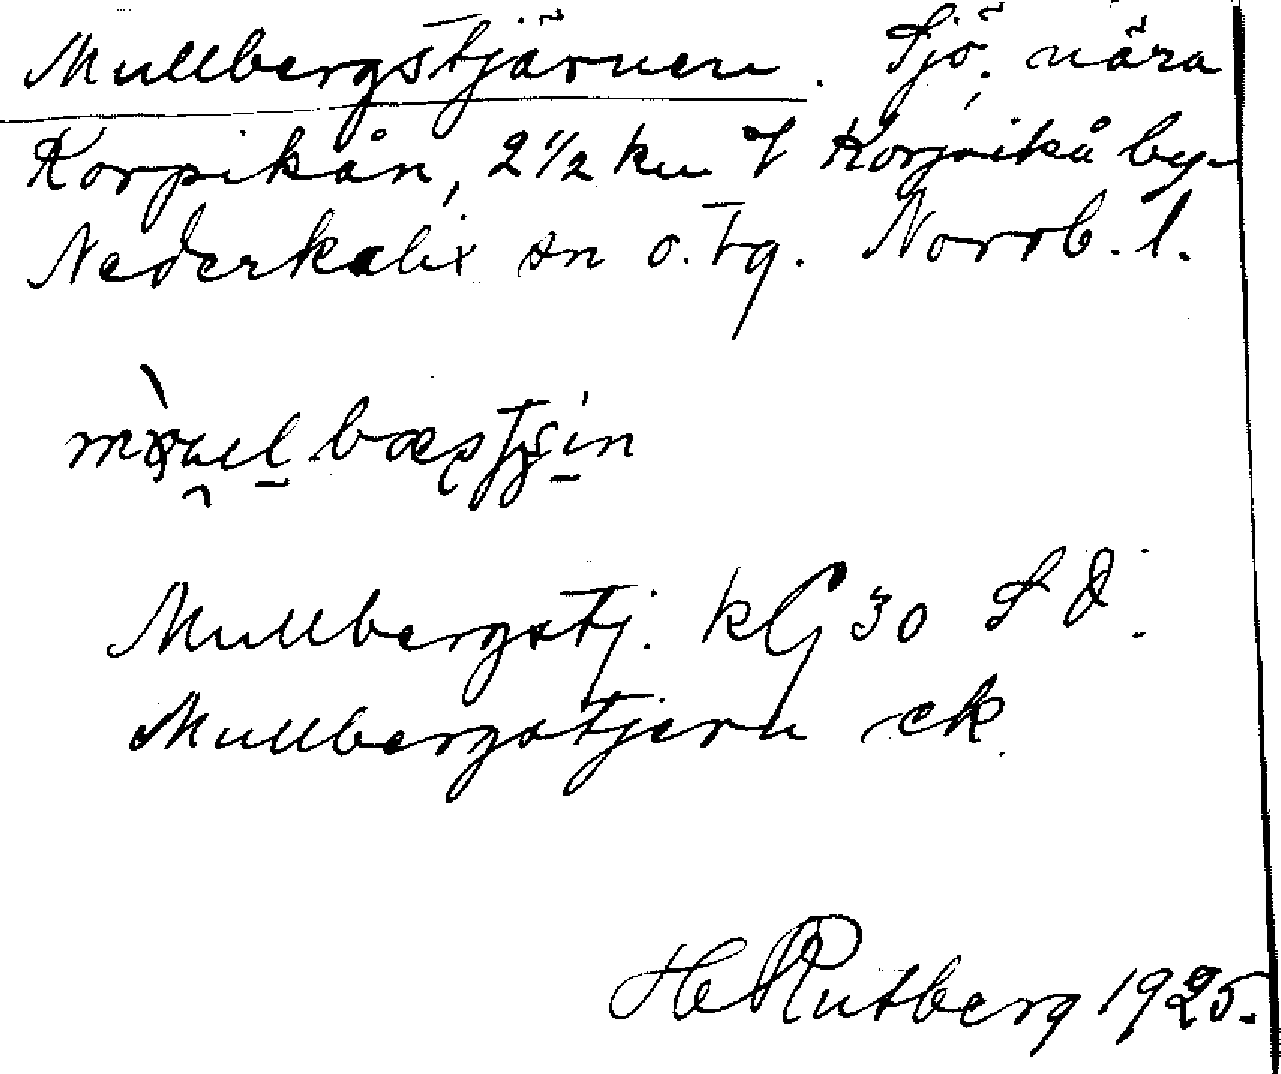 Mullbergstjärnen. Sjö, nära
Korpikån, 2 1/2 km V Korpikå by
Nederkalix sn o. tg. Norrb. l.
Mullbergstj. kG 30 S Ö.
Mullbergstjern ek.
H Rutberg 1925.